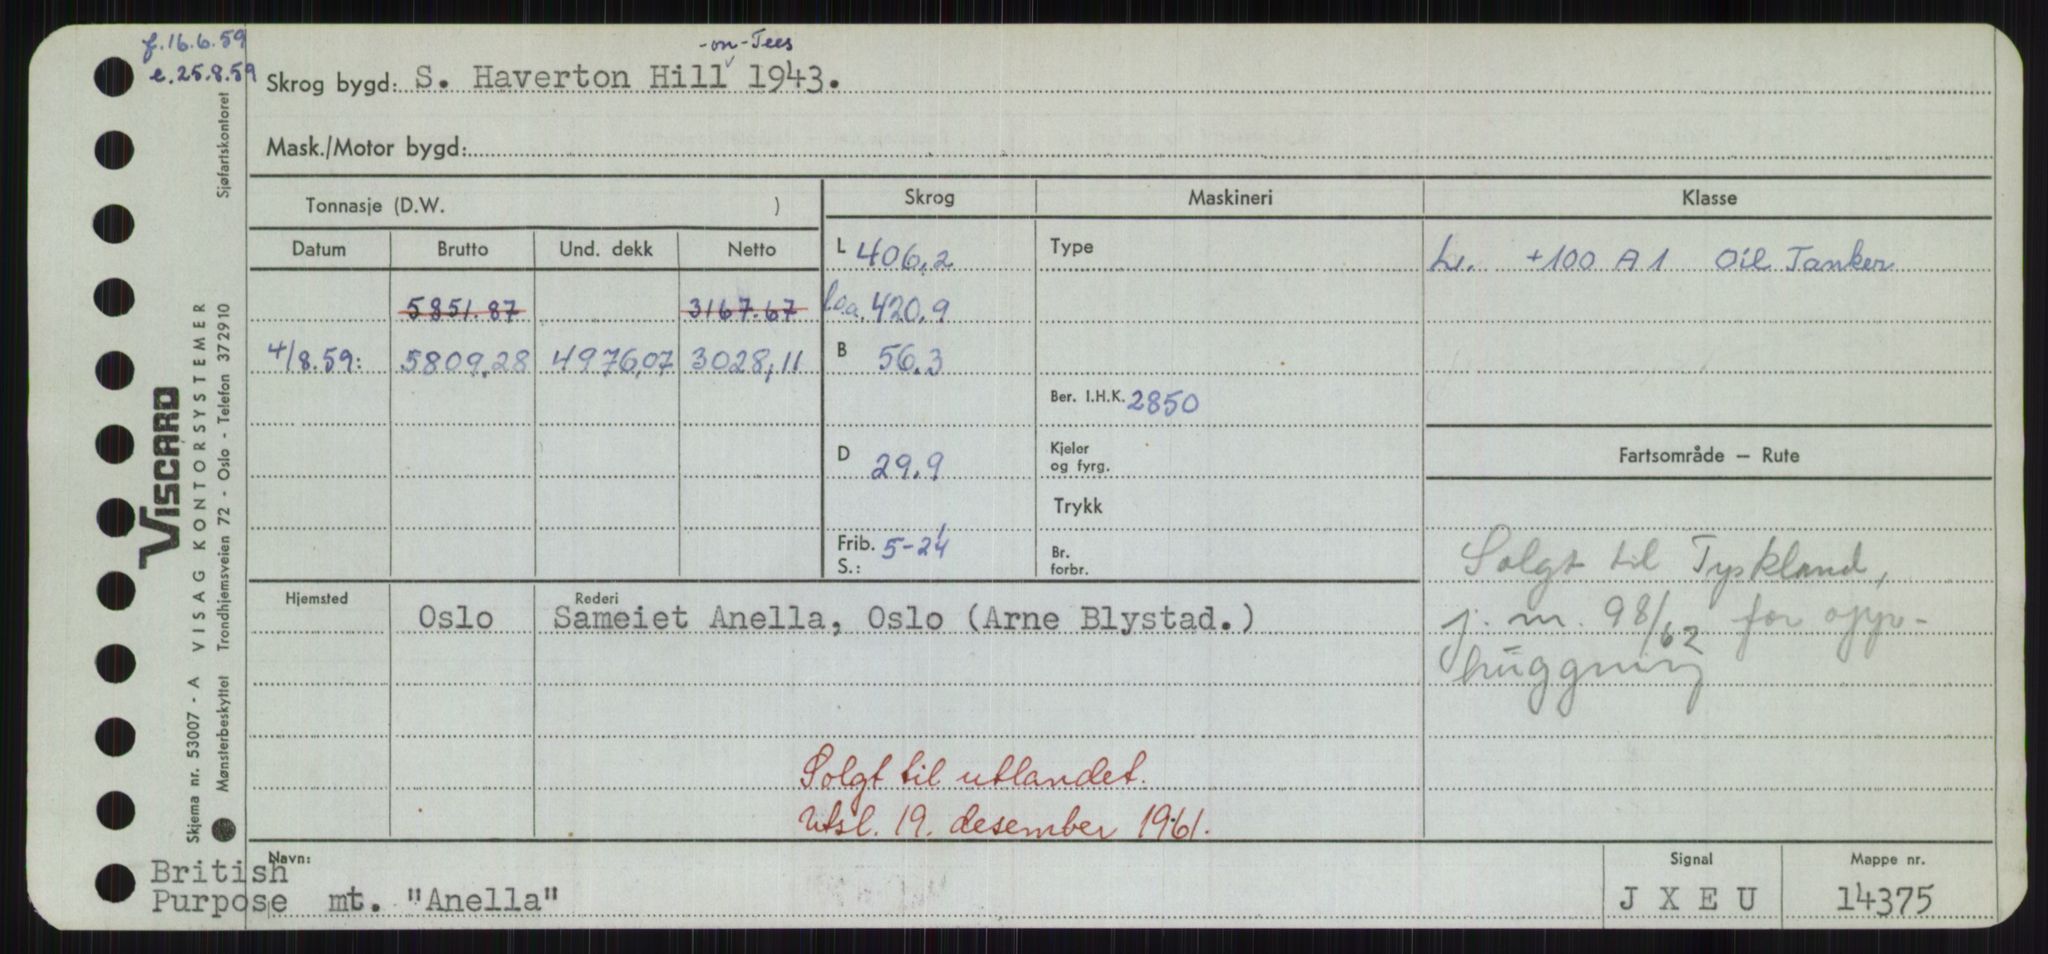 f. 16.6.59
e. 25.8.59
-on-Tees
Skrog bygd: S. Haverton Hill √ 1943.
Mask./Motor bygd:
Tonnasje (D.W. )
Skrog Maskineri Klasse
Datum Brutto Und. dekk Netto
L 406.2 Type Lr. +100 A 1 Oil Tanker
5851.87 3167.67 l.o.a. 420.9
4/8.59: 5809,28 4976,07 3028,11 B 56.3
Ber. I.H.K. 2850
D 29.9 Kjeler og fyrg. Fartsområde — Rute
Trykk
Frib. S.: 5-24 Br. forbr.
Solgt til Tyskland,
j. m. 98/62 for opp-
huggning
Hjemsted Rederi
Oslo Sameiet Anella, Oslo (Arne Blystad.)
Solgt til utlandet.
Utsl. 19. desember 1961.
Navn: Signal Mappe nr.
British
Purpose mt. "Anella" J X E U 14375
Sjøfartskontoret
VISCARD
VISAG KONTORSYSTEMER
Trondhjemsveien 72 - Oslo - Telefon 372910
Skjema nr. 53007 - A
Mønsterbeskyttet